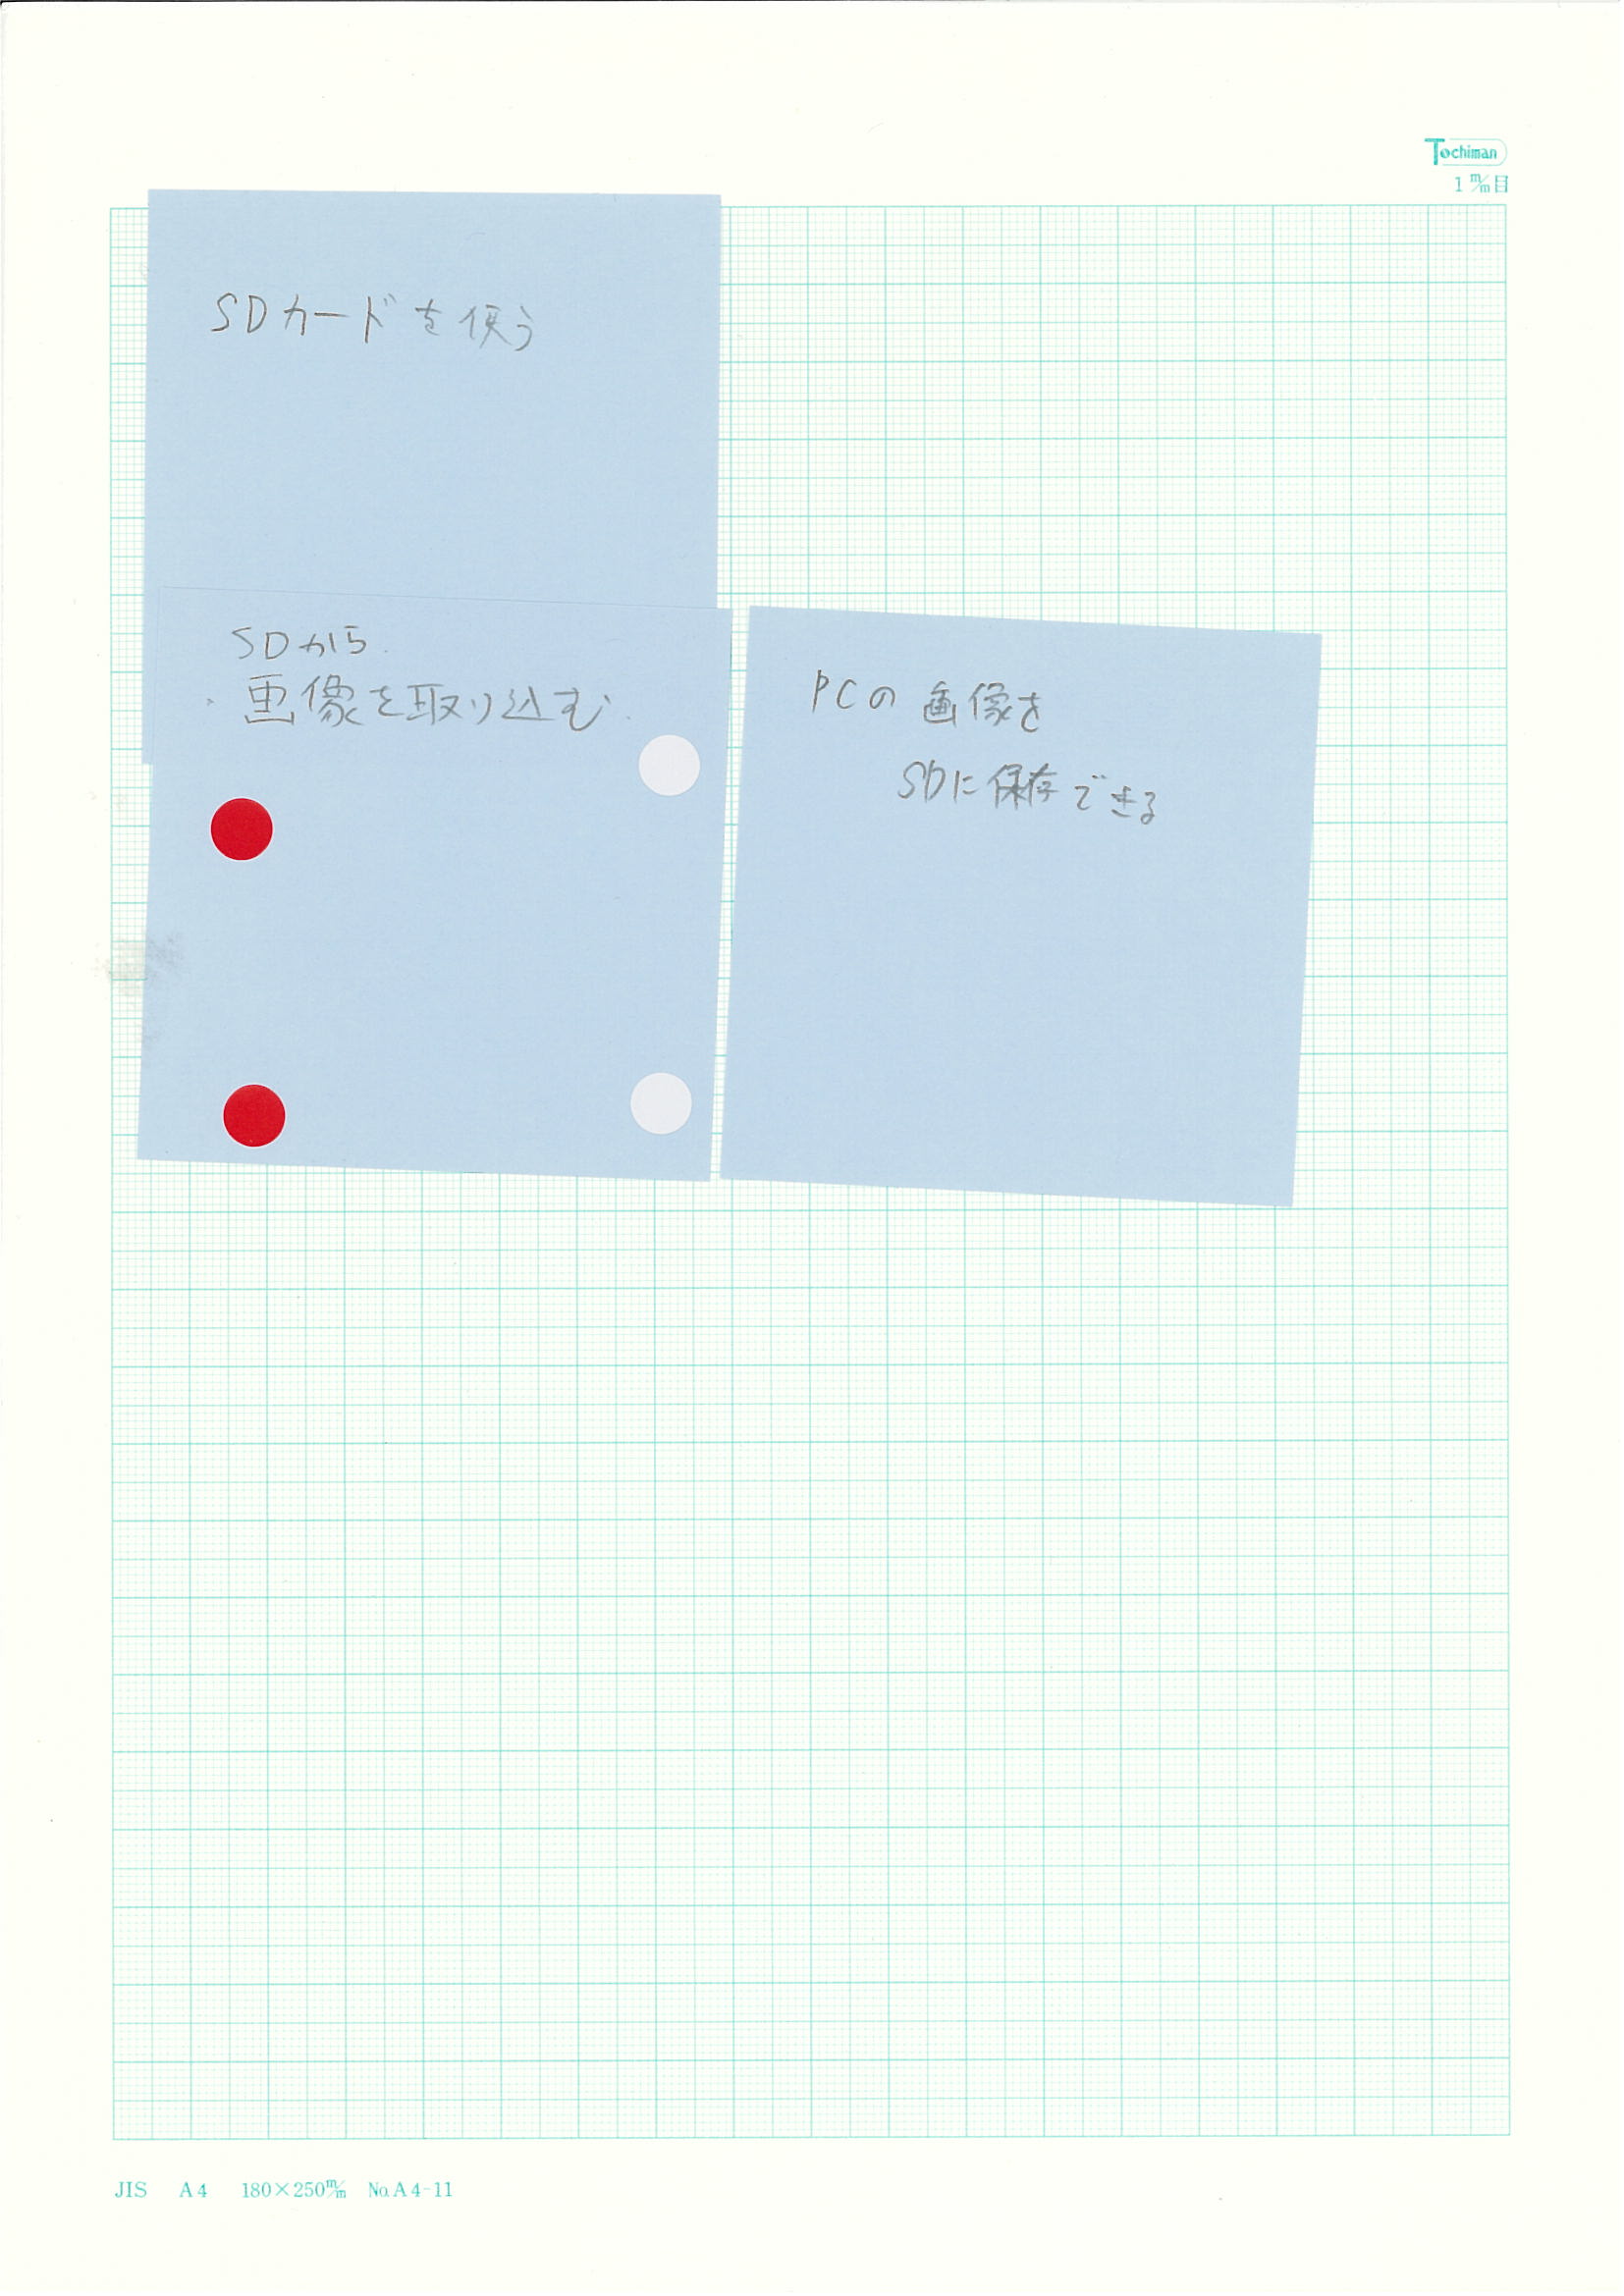 Tochiman
1 m/m目
SDカードを使う
SDから
画像を取り込む
PCの画像を
SDに保存できる
JIS A4 180×250m/m No.A4-11